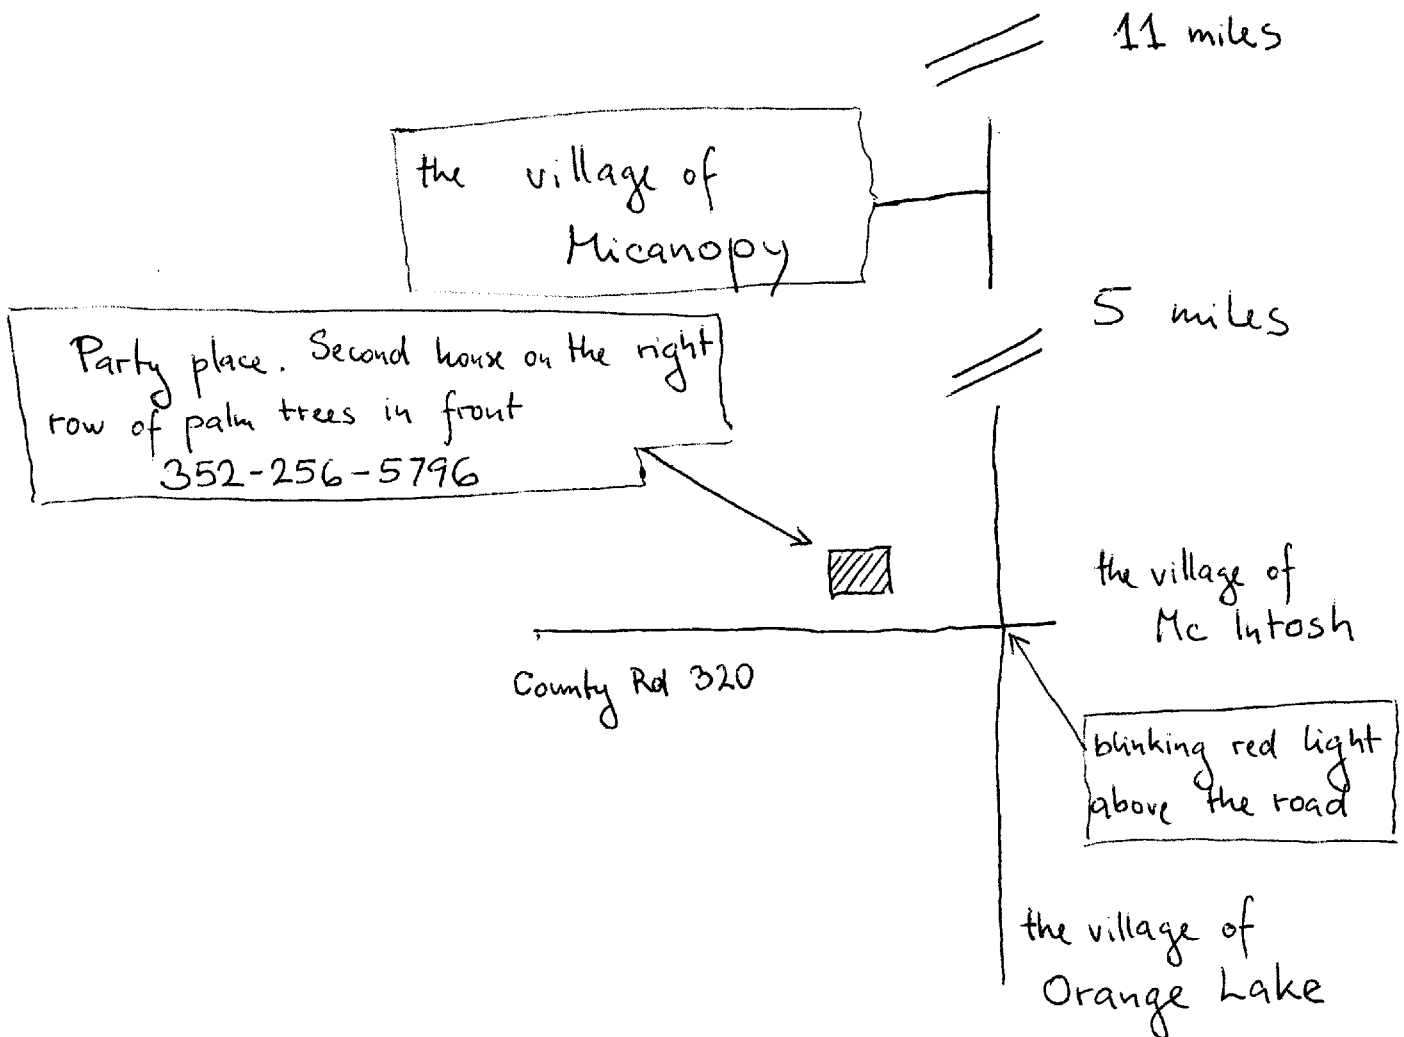 11 miles
the village of
Micanopy
5 miles
Party place. Second house on the right
row of palm trees in front
352-256-5796
the village of
Mc Intosh
County Rd 320
blinking red light
above the road
the village of
Orange Lake